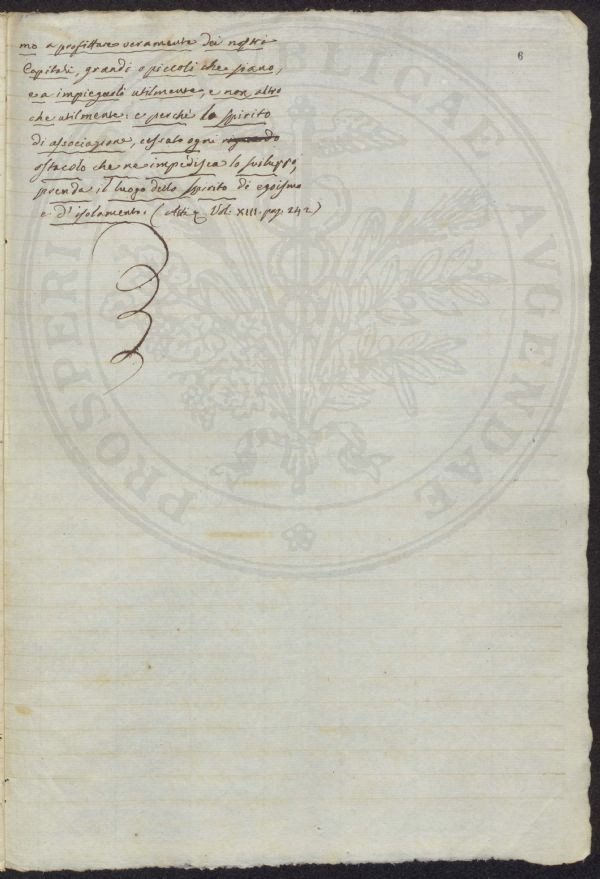 6
mo a profittare veramente dei nostri
Capitali, grandi o piccoli che siano,
e a impiegarli utilmente, e non altro
che utilmente: e perchè lo spirito
di associazione, cessato ogni riguardo
ostacolo che ne impedisca lo sviluppo,
prenda il luogo dello spirito di egoismo
e d'isolamento. (Atti Vol. XIII. pag. 242)
PROSPERITATI PUBLICAE AUGENDAE